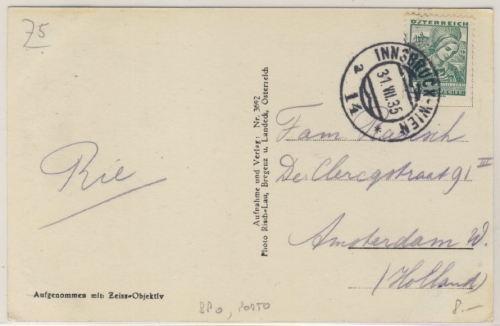 75
ÖSTERREICH
INNSBRUCK-WIEN
31.VII.35
a
14
*
Aufnahme und Verlag: Nr. 3692
Photo Risch-Lau, Bregenz u. Landeck, Österreich
Fam.
De Clercqstraat 91 III
Amsterdam W.
(Holland)
Rie
Aufgenommen mit Zeiss-Objektiv
8.-